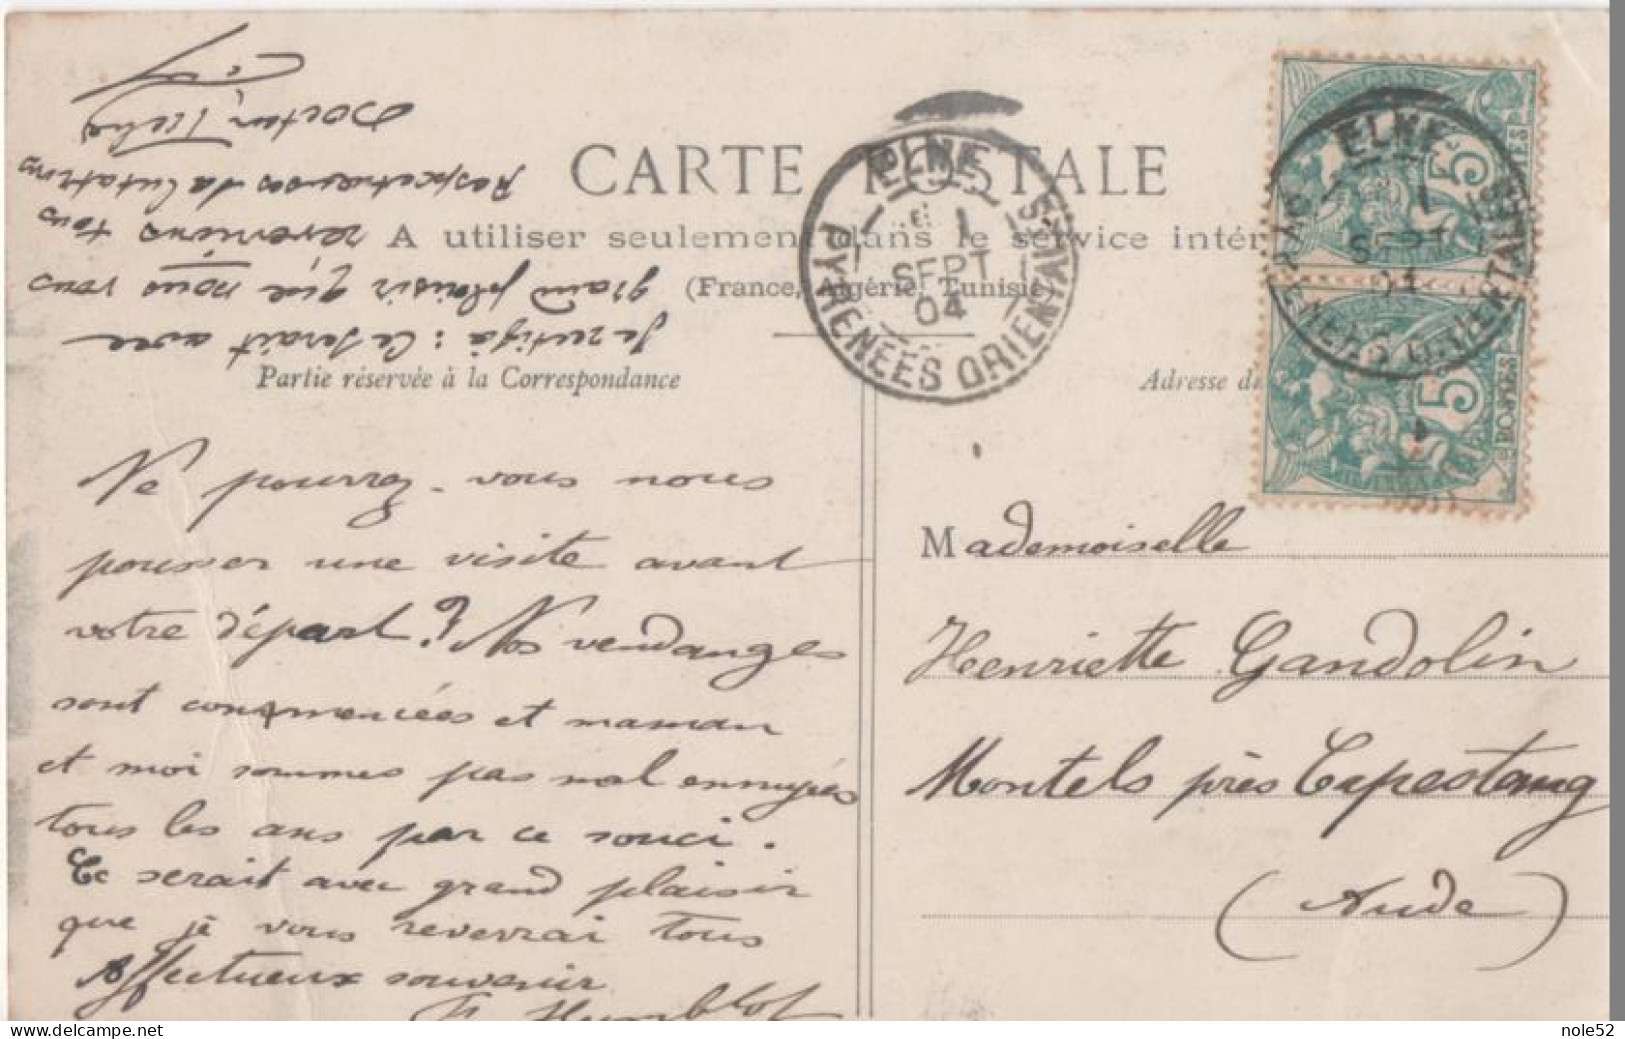 CARTE POSTALE
A utiliser seulement dans le service intér
(France, Algérie, Tunisie)
Partie réservée à la Correspondance
Adresse du
ELNE
1
SEPT
04
PYRENEES ORIENTALES
ELNE
1
SEPT
04
PYRENEES ORIENTALES
5c
POSTES
5
POSTES
Je rectifie : Ce serait avec
grand plaisir que nous vous
reverrions tous
Respectueuses Salutations
Docteur
Ne pourrez-vous nous
pousser une visite avant
votre départ? Nos vendanges
sont commencées et maman
et moi sommes pas mal ennuyées
tous les ans par ce souci.
Ce serait avec grand plaisir
que je vous reverrai tous
Affectueux souvenir
Humblot
Mademoiselle
Henriette Gandolin
Montels près Capestang
(Aude)
nole52